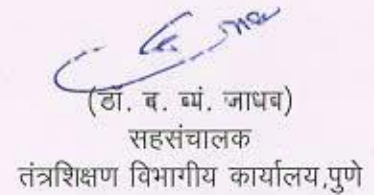 (डॉ. ब. व्यं. जाधव)
सहसंचालक
तंत्रशिक्षण विभागीय कार्यालय,पुणे